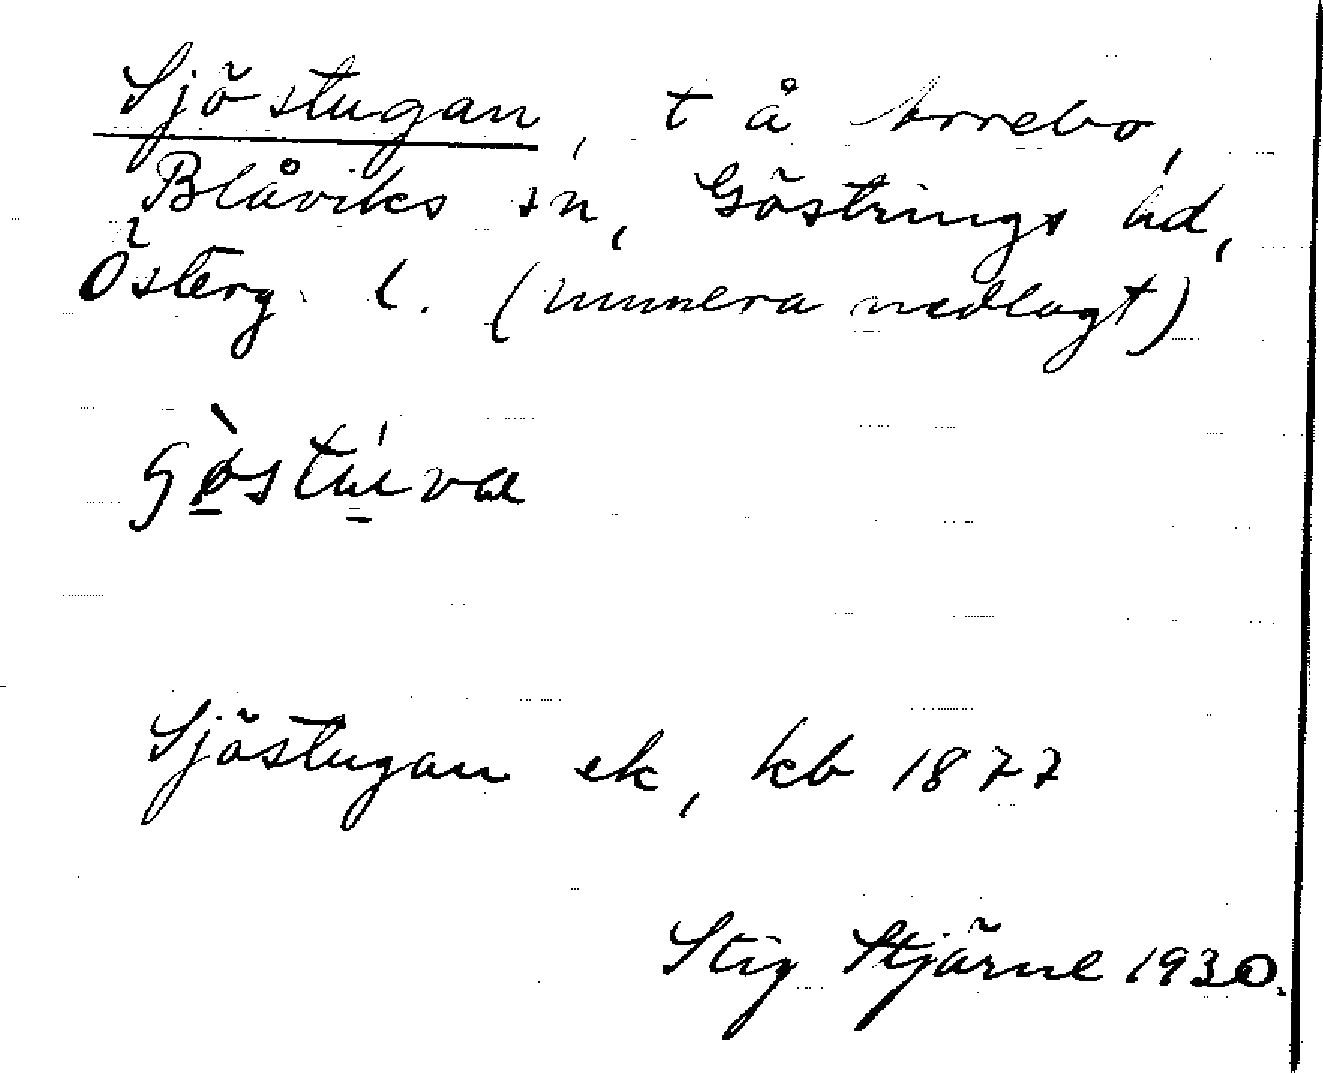 Sjöstugan, t å Arrebo,
Blåviks sn, Göstrings hd,
Österg. l. (numera nedlagt)
Sjöstugan ek, kb 1877
Stig Stjärne 1930.